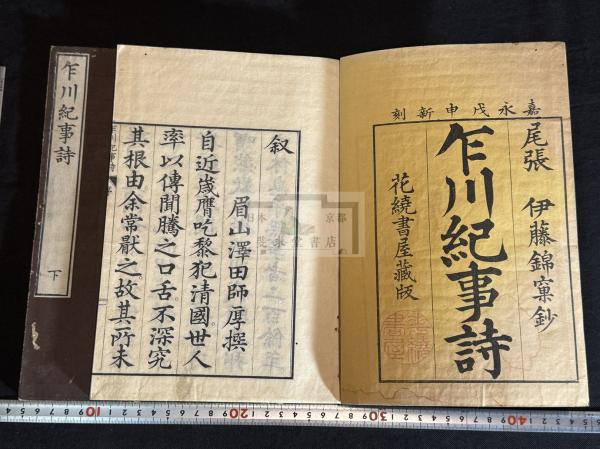 嘉永戊申新刻
尾張 伊藤錦窠鈔
乍川紀事詩
花繞書屋藏版
叙
眉山澤田師厚撰
自近歳膺吃黎犯清國世人
率以傳聞騰之口舌不深究
其根由余常厭之故其所未
乍川紀事詩
下
日本 京都
書店
10 20 30